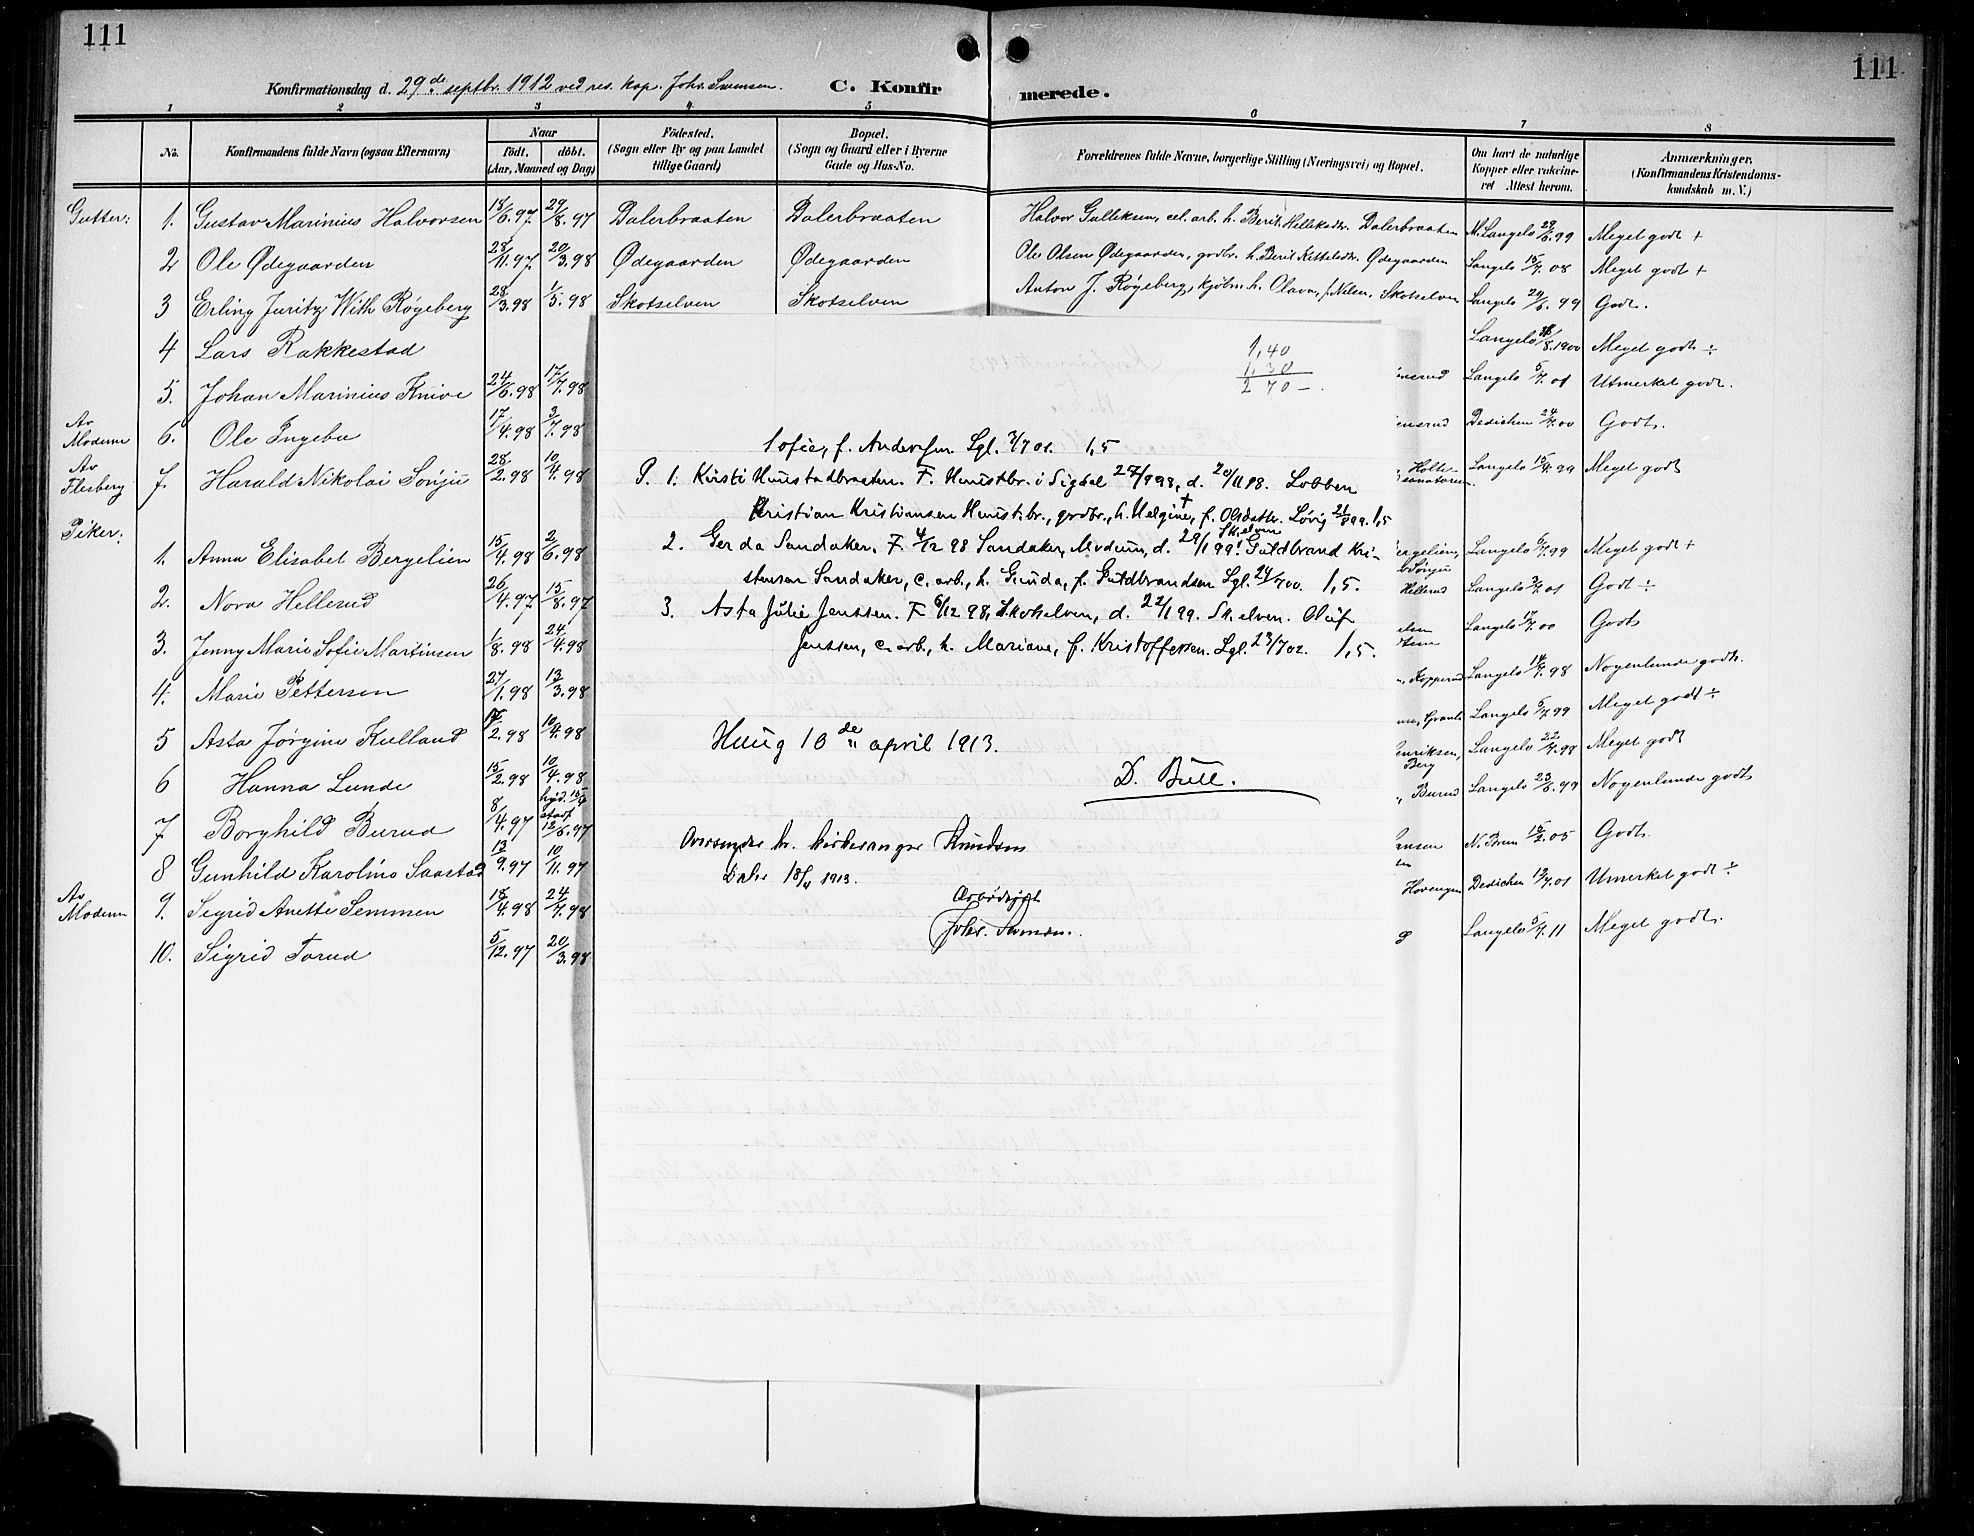 111
111
Konfirmationsdag d. 29de septbr. 1912 ved res. kap. Johs. Svensen. C. Konfir merede.
1 2 3 4 5 6 7 8
No.
Konfirmandens fulde Navn (ogsaa Efternavn)
Naar
födt. döbt.
(Aar, Maaned og Dag)
Födested.
(Sogn eller By og paa Landet
tillige Gaard)
Bopæl.
(Sogn og Gaard eller i Byerne
Gade og Hus-No.
Forældrenes fulde Navne, borgerlige Stilling (Næringsvei) og Bopæl.
Om havt de naturlige
Kopper eller vakcine-
ret Attest herom.
Anmærkninger.
(Konfirmandens Kristendoms-
kundskab m. V.)
Gutter: 1. Gustav Marinius Halvorsen 18/6.97 29/8.97 Dalerbraaten Dalerbraaten Halvor Gulliksen, cel. arb. h. Berit Helleksdtr. Dalerbraaten N. Langelo 29/6.99 Meget godt +
2 Ole Ødegaarden 28/11.97 20/3.98 Ødegaarden Ødegaarden Ole Olsen Ødegaarden, grdbr. h. Berit Kittelsdtr. Ødegaarden Langelo 15/7.08 Meget godt +
3 Erling Juritz With Røgeberg 28/3.98 1/5.98 Skotselven Skotselven Anton J. Røgeberg, kjøbm. h. Olava, f. Nilsen, Skotselven Langelo 29/6.99 Godt.
4 Lars Rakkestad Langelo /8.1900 Meget godt ÷
5. Johan Marinius Knive 24/6.98 17/7.98 enserud Langelo 5/7.01 Utmerket godt.
Av Modum 6. Ole Ingebu 17/4.98 3/7.98 enerud Dedichen 24/7.00 Godt.
Av Flesberg 7. Harald Nikolai Sønju 28/2.98 10/4.98 Holte-sanatorium. Langelo 15/7.99 Meget godt
Piker:
1. Anna Elisabet Bergelien 15/4.98 2/6.98 ergelien, Langelo 6/7.99 Meget godt +
2. Nora Hellerud 26/4.97 15/8.97 Hellerud Langelo 3/7.01 Godt ÷
3. Jenny Marie Sofie Martinsen 1/8.98 24/4.98 elsen Langelo 17/7.00 Godt
4. Marie Pettersen 27/1.98 13/3.98 Kopperud Langelo 14/7.98 Nogenlunde godt.
5 Asta Jørgine Kulland 17/2.98 10/4.98 Langelo 5/7.99 Meget godt ÷
6 Hanna Lunde 15/2.98 10/4.98 enriksen, Berg Langelo 22/7.98 Meget godt
7 Borghild Burud 8/4.97 hjd. 15/4 stadf 12/6.97 Burud Langelo 23/6.99 Nogenlunde godt
8 Gunhild Karolino Saastad 13/9.97 10/11.97 ensen N. Brun 15/2.05 Godt.
Av Modum 9. Sigrid Anette Semmen 18/4.98 24/7.98 Hovengen Dedichen 12/7.01 Utmerket godt ÷
10. Sigrid Torud 5/12.97 20/3.98 Langelo 5/7.11 Meget godt.
1,40
1,30
2 70 –.
Sofie, f. Andersen. Lgl. 7/7 01. 1,5
P. 1. Kirsti Hunstadbraaten. F. Hunstbr. i Sigdal 27/9 98, d. 20/11 98. Lobben
Kristian Kristiansen Hunst.br., grdbr., h. Helgine +, f. Olsdatter. Løvig 21/8 99. 1,5
2. Gerda Sandaker. F 4/12 98 Sandaker, Modum, d. 29/1 99. Sk.elven Guldbrand Kri-
stensen Sandaker, c. arb., h. Gunda, f. Guldbrandsen Lgl. 24/7 00. 1,5.
3. Asta Julie Jenssen. F 6/12 98, Skotselven, d. 22/1 99. Sk.elven. Oluf
Jenssen, c. arb., h. Mariane, f. Kristoffersen. Lgl. 23/7 02. 1,5.
Haug 10de april 1913.
D. Bull.
Oversendes hr. kirkesanger Knudsen
18/4 1913.
Ærbødigst
Johs. Svensen.